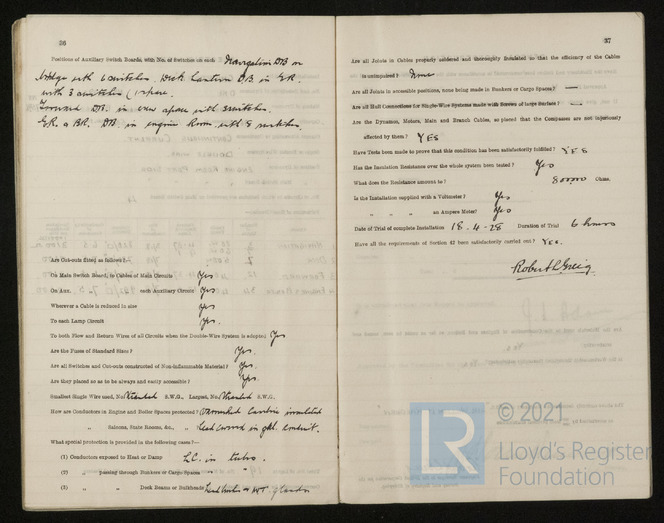 36
Positions of Auxiliary Switch Boards, with No. of Switches on each Navigation DB on
bridge with 6 switches. Deck Lantern D.B. in E.R.
with 3 switches (1 spare.
Forward DB. in crew space with switches.
E.R. & B.R. DB. in engine Room with 8 switches.
Are Cut-outs fitted as follows?—
On Main Switch Board, to Cables of Main Circuits Yes
On Aux. " " each Auxiliary Circuit Yes
Wherever a Cable is reduced in size Yes
To each Lamp Circuit Yes.
To both Flow and Return Wires of all Circuits when the Double-Wire System is adopted Yes
Are the Fuses of Standard Sizes? Yes.
Are all Switches and Cut-outs constructed of Non-inflammable Material? Yes.
Are they placed so as to be always and easily accessible? Yes.
Smallest Single Wire used, No. Stranded S.W.G., Largest, No. Stranded S.W.G.
How are Conductors in Engine and Boiler Spaces protected? Varnished Cambric insulated
" Saloons, State Rooms, &c., " Lead covered in conduit.
What special protection is provided in the following cases?—
(1) Conductors exposed to Heat or Damp L.C. in tubes.
(2) " passing through Bunkers or Cargo Spaces " "
(3) " " Deck Beams or Bulkheads WT. glands
37
Are all Joints in Cables properly soldered and thoroughly insulated so that the efficiency of the Cables
is unimpaired? None
Are all Joints in accessible positions, none being made in Bunkers or Cargo Spaces? —
Are all Hull Connections for Single-Wire Systems made with Screws of large Surface? —
Are the Dynamos, Motors, Main and Branch Cables, so placed that the Compasses are not injuriously
affected by them? YES
Have Tests been made to prove that this condition has been satisfactorily fulfilled? YES
Has the Insulation Resistance over the whole system been tested? Yes
What does the Resistance amount to? 800,000 Ohms.
Is the Installation supplied with a Voltmeter? Yes
" " " an Ampere Meter? Yes
Date of Trial of complete Installation 18.4.28 Duration of Trial 6 hours
Have all the requirements of Section 42 been satisfactorily carried out? YES.
Robert C Greig
LR
© 2021
Lloyd's Register
Foundation